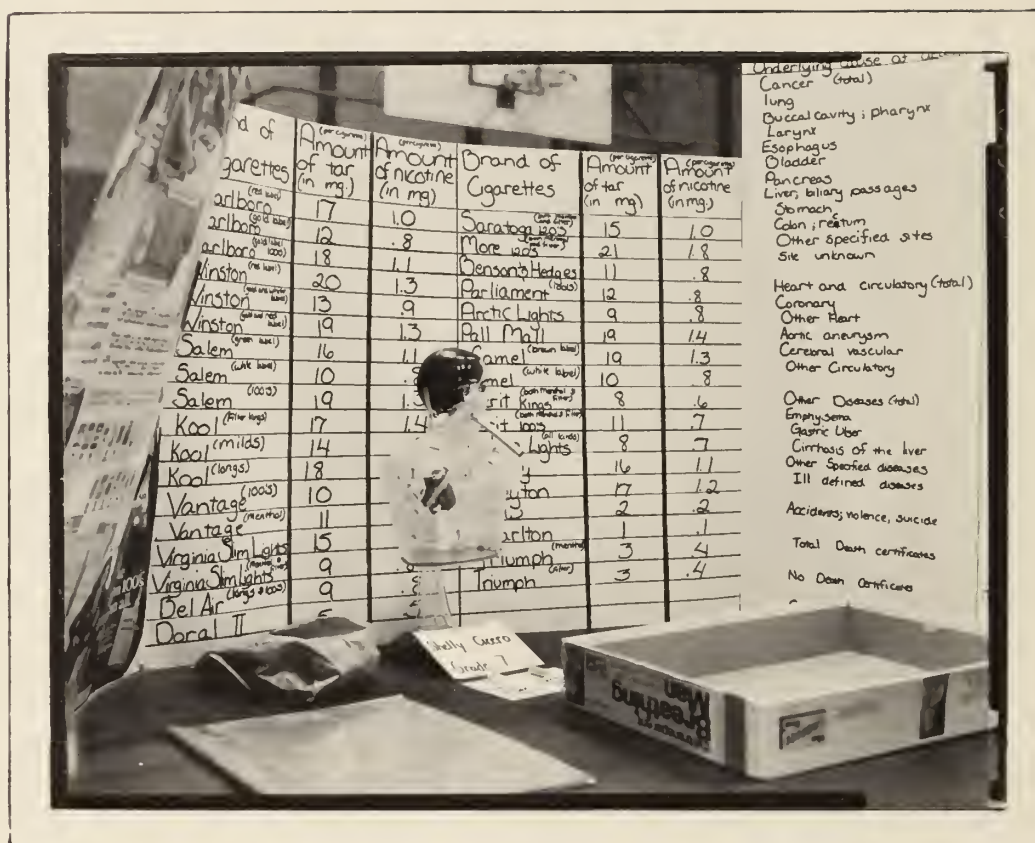 nd of
garettes
(per cigarette)
Amount
of tar
(in mg.)
(per cigarette)
Amount
of nicotine
(in mg)
Brand of
Cigarettes
(per cigarette)
Amount
of tar
(in mg)
(per cigarette)
Amount
of nicotine
(in mg.)
arlboro (red label) 17 1.0 Saratoga 120's (both menthol and filter) 15 1.0
arlboro (gold label) 12 .8 More 120's 21 1.8
arlboro (gold label 100's) 18 1.1 Benson & Hedges 11 .8
Winston (red label) 20 1.3 Parliament (100's) 12 .8
Winston (gold and white label) 13 .9 Arctic Lights 9 .8
Winston (gold and red label) 19 1.3 Pall Mall 19 1.4
Salem (green label) 16 1.1 Camel (brown label) 19 1.3
Salem (white label) 10 mel (white label) 10 .8
Salem (100's) 19 rit Kings (both menthol & filter) 8 .6
Kool (filter kings) 17 1.4 rit 100's (both menthol & filter) 11 .7
Kool (milds) 14 Lights (all kinds) 8 .7
Kool (longs) 18 16 1.1
Vantage (100's) 10 yton 17 1.2
Vantage (menthol) 11 2 .2
Virginia Slim Lights 15 arlton 1 .1
Virginia Slim Lights (menthol & filter) 9 Triumph (menthol) 3 .4
Bel Air (longs & 100's) 9 Triumph (filter) 3 .4
Doral II 5
Underlying cause of
Cancer (total)
lung
Buccal cavity; pharynx
Larynx
Esophagus
Bladder
Pancreas
Liver; biliary passages
Stomach
Colon; rectum
Other specified sites
Site unknown
Heart and circulatory (total)
Coronary
Other Heart
Aortic aneurysm
Cerebral vascular
Other Circulatory
Other Diseases (total)
Emphysema
Gastric Ulser
Cirrhosis of the liver
Other Specified diseases
Ill defined diseases
Accidents; violence, suicide
Total Death certificates
No Death Certificates
100's
Shelly Cucro
Grade 7
Breathing
Man